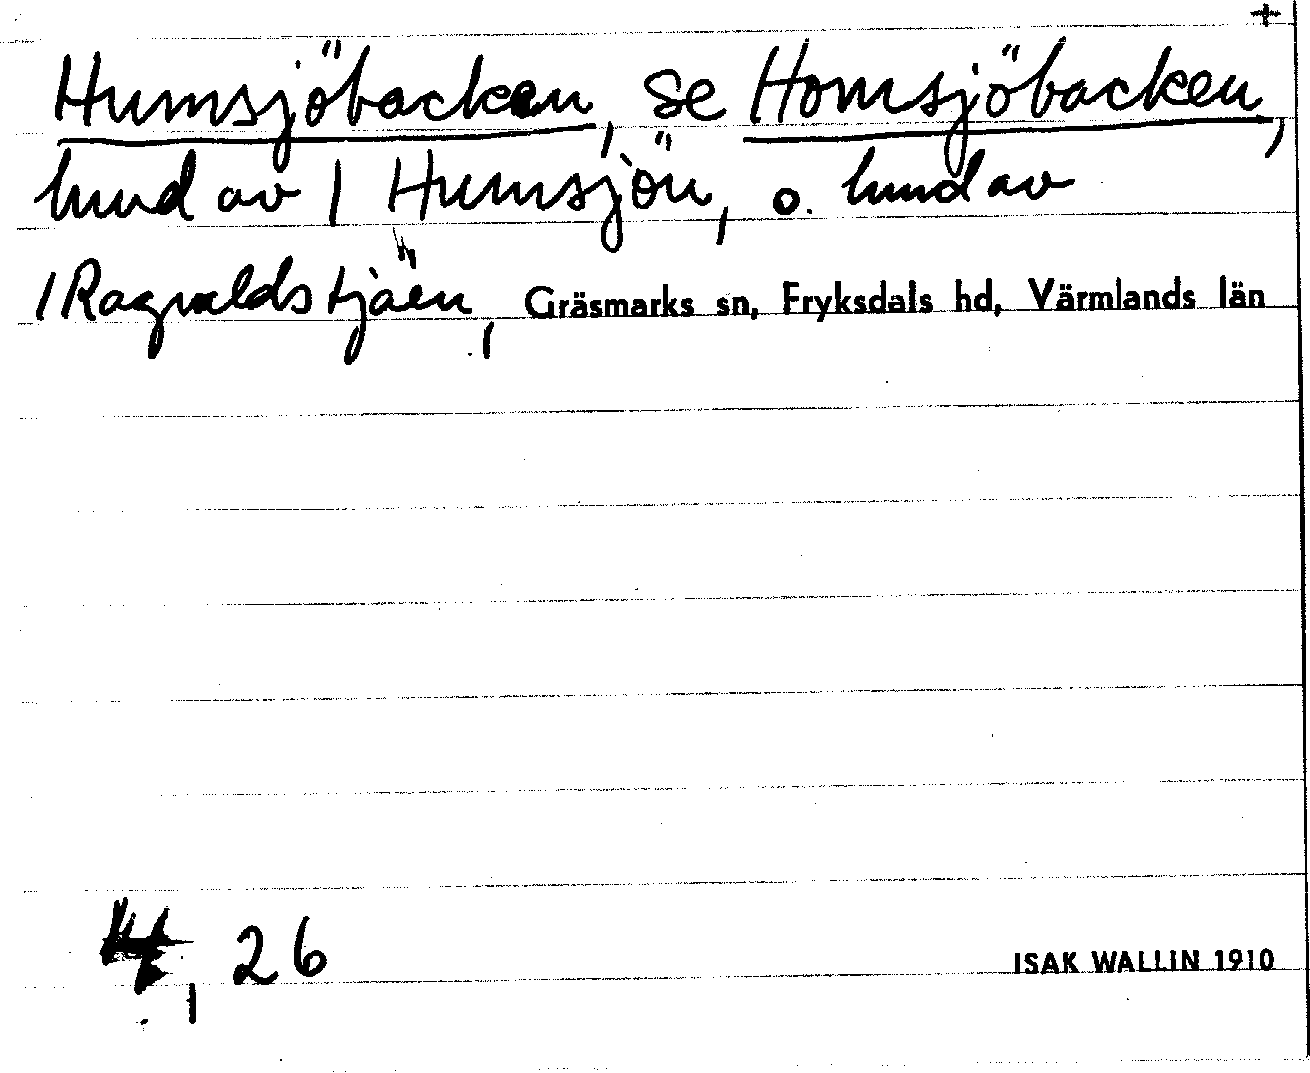 +
Humsjöbacken, se Homsjöbacken,
hmd av 1 Humsjön, o. hmd av
1 Ragvaldstjäen, Gräsmarks sn, Fryksdals hd, Värmlands län
, 26
ISAK WALLIN 1910